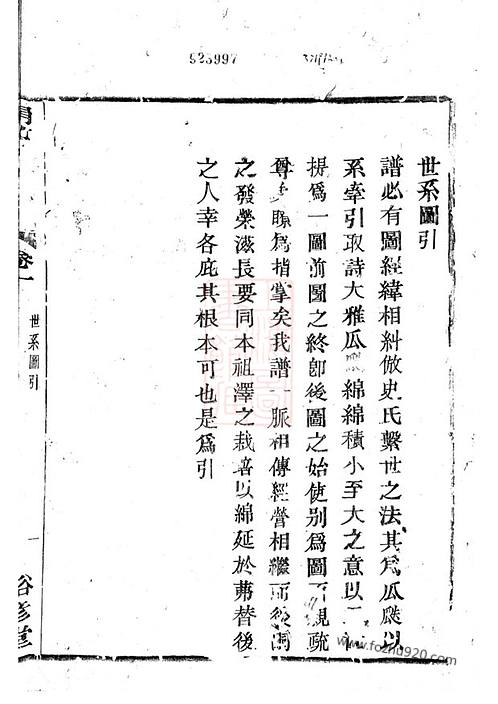 923997
世系圖引
譜必有圖經緯相糾倣史氏繫世之法其爲瓜瓞以
系牽引取詩大雅瓜綿綿積小至大之意以
提爲一圖前圖之終卽後圖之始使别爲圖親疏
尊聮爲指掌矣我譜一脈相傳經營相繼而後
之發榮滋長要同本祖澤之栽培以綿延於弗替後
之人幸各庇其根本可也是爲引
卷一
世系圖引
一
裕彥堂
www.fozhu920.com